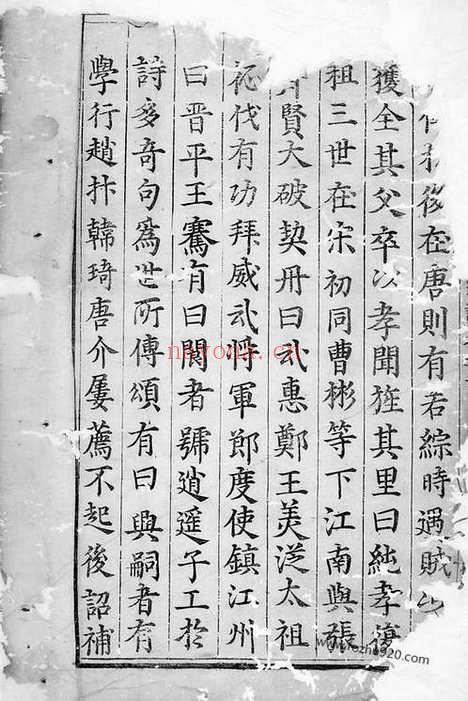 後在唐則有名綜時遇賊
獲全其父卒以孝聞旌其里曰純孝
祖三世在宋初同曹彬等下江南與張
賢大破契丹曰武惠鄭王羙從太祖
征伐有功拜威武將軍節度使鎮江州
曰晋平王騫有曰閬者號逍遥子工於
詩多竒句爲世所傳頌有曰興嗣者有
學行趙抃韓琦唐介屢薦不起後詔補
nayona.cn
www.kozho920.com